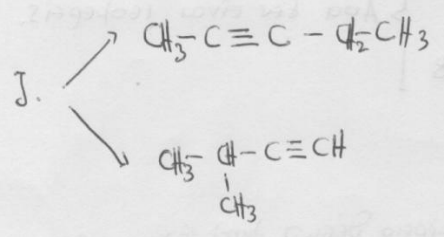 CH3-C≡C-CH2-CH3
J.
CH3-CH-C≡CH
CH3